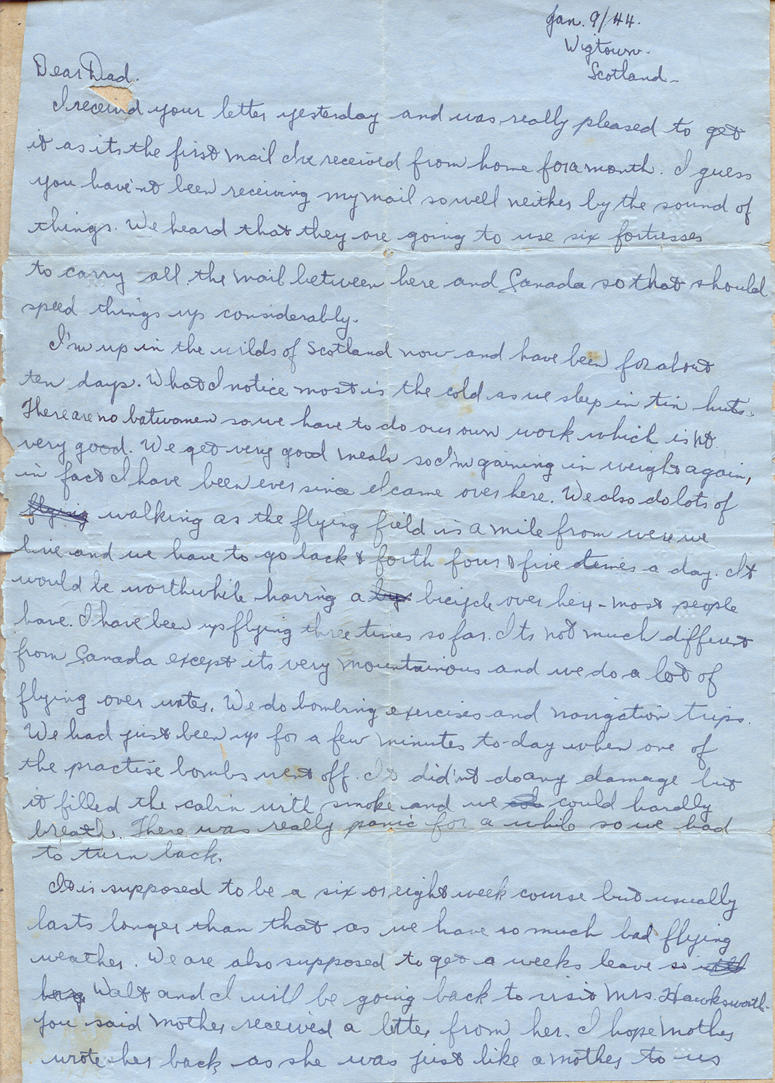 Jan. 9/44.
Wigtown.
Scotland-
Dear Dad.
I received your letter yesterday and was really pleased to get
it as its the first mail I've received from home for a month. I guess
you have'nt been receiving my mail so well neither by the sound of
things. We heard that they are going to use six fortresses
to carry all the mail between here and Canada so that should
speed things up considerably.
I'm up in the wilds of Scotland now and have been for about
ten days. What I notice most is the cold as we sleep in tin huts.
There are no batwomen so we have to do our own work which is not
very good. We get very good meals so I'm gaining in weight again,
in fact I have been ever since I came over here. We also do lots of
flying walking as the flying field is a mile from were we
live and we have to go back & forth four & five times a day. It
would be worthwhile having a bicycle over here - most people
have. I have been up flying three times so far. Its not much different
from Canada except its very mountainous and we do a lot of
flying over water. We do bombing exercises and navigation trips.
We had just been up for a few minutes to-day when one of
the practise bombs went off. It did'nt do any damage but
it filled the cabin with smoke and we could hardly
breath. There was really panic for a while so we had
to turn back.
It is supposed to be a six or eight week course but usually
lasts longer than that as we have so much bad flying
weather. We are also supposed to get a weeks leave so
Walt and I will be going back to visit Mrs. Hawksworth-
you said Mother received a letter from her. I hope Mother
wrote her back as she was just like a mother to us